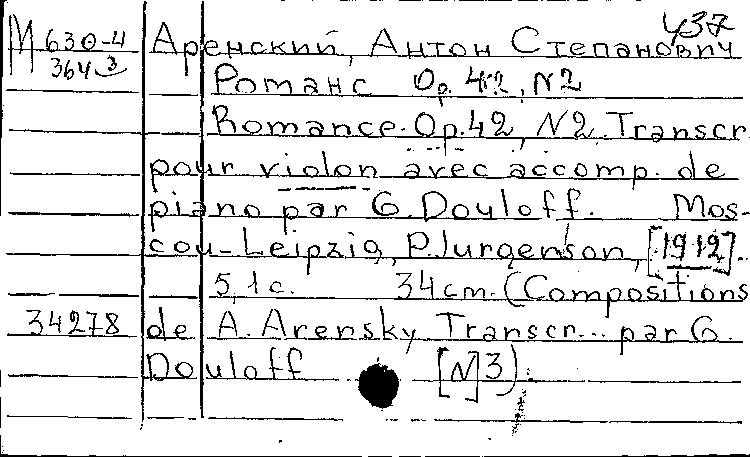 437
М 630-4 Аренский, Антон Степанович
364 3 Романс Op. 42, N2
Romance. Op. 42, N2. Transcr.
pour violon avec accomp. de
piano par G. Douloff. Mos-
cou-Leipzig, P. Jurgenson, [1912].
5, 1 c. 34 cm. (Compositions
34278 de A. Arensky Transcr... par G.
Douloff [N] 3).